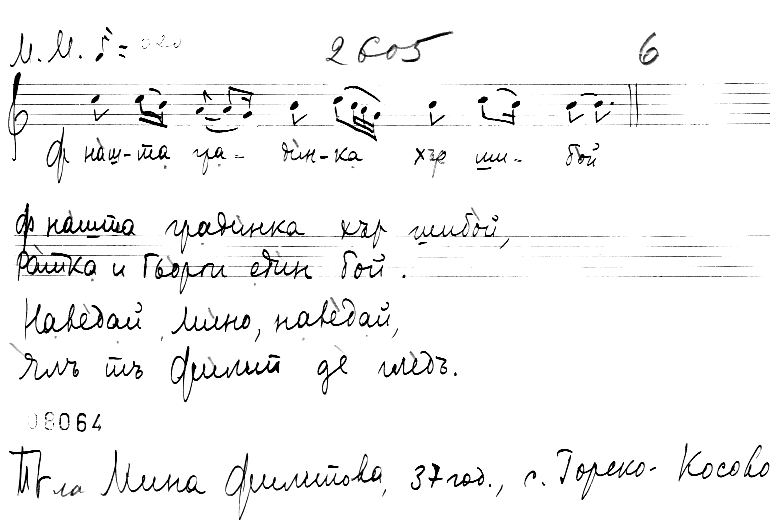 М.М. ♪= 2605 6
ф наш-та гра- дин-ка хър ши- бой
ф нашта градинка хър шибой,
Рашка и Гьорги един бой.
Наведай, Мино, наведай,
Ялъ тъ Филип де гледъ.
08064
Пяла Мина Филипова, 37 год., с. Горско-Косово